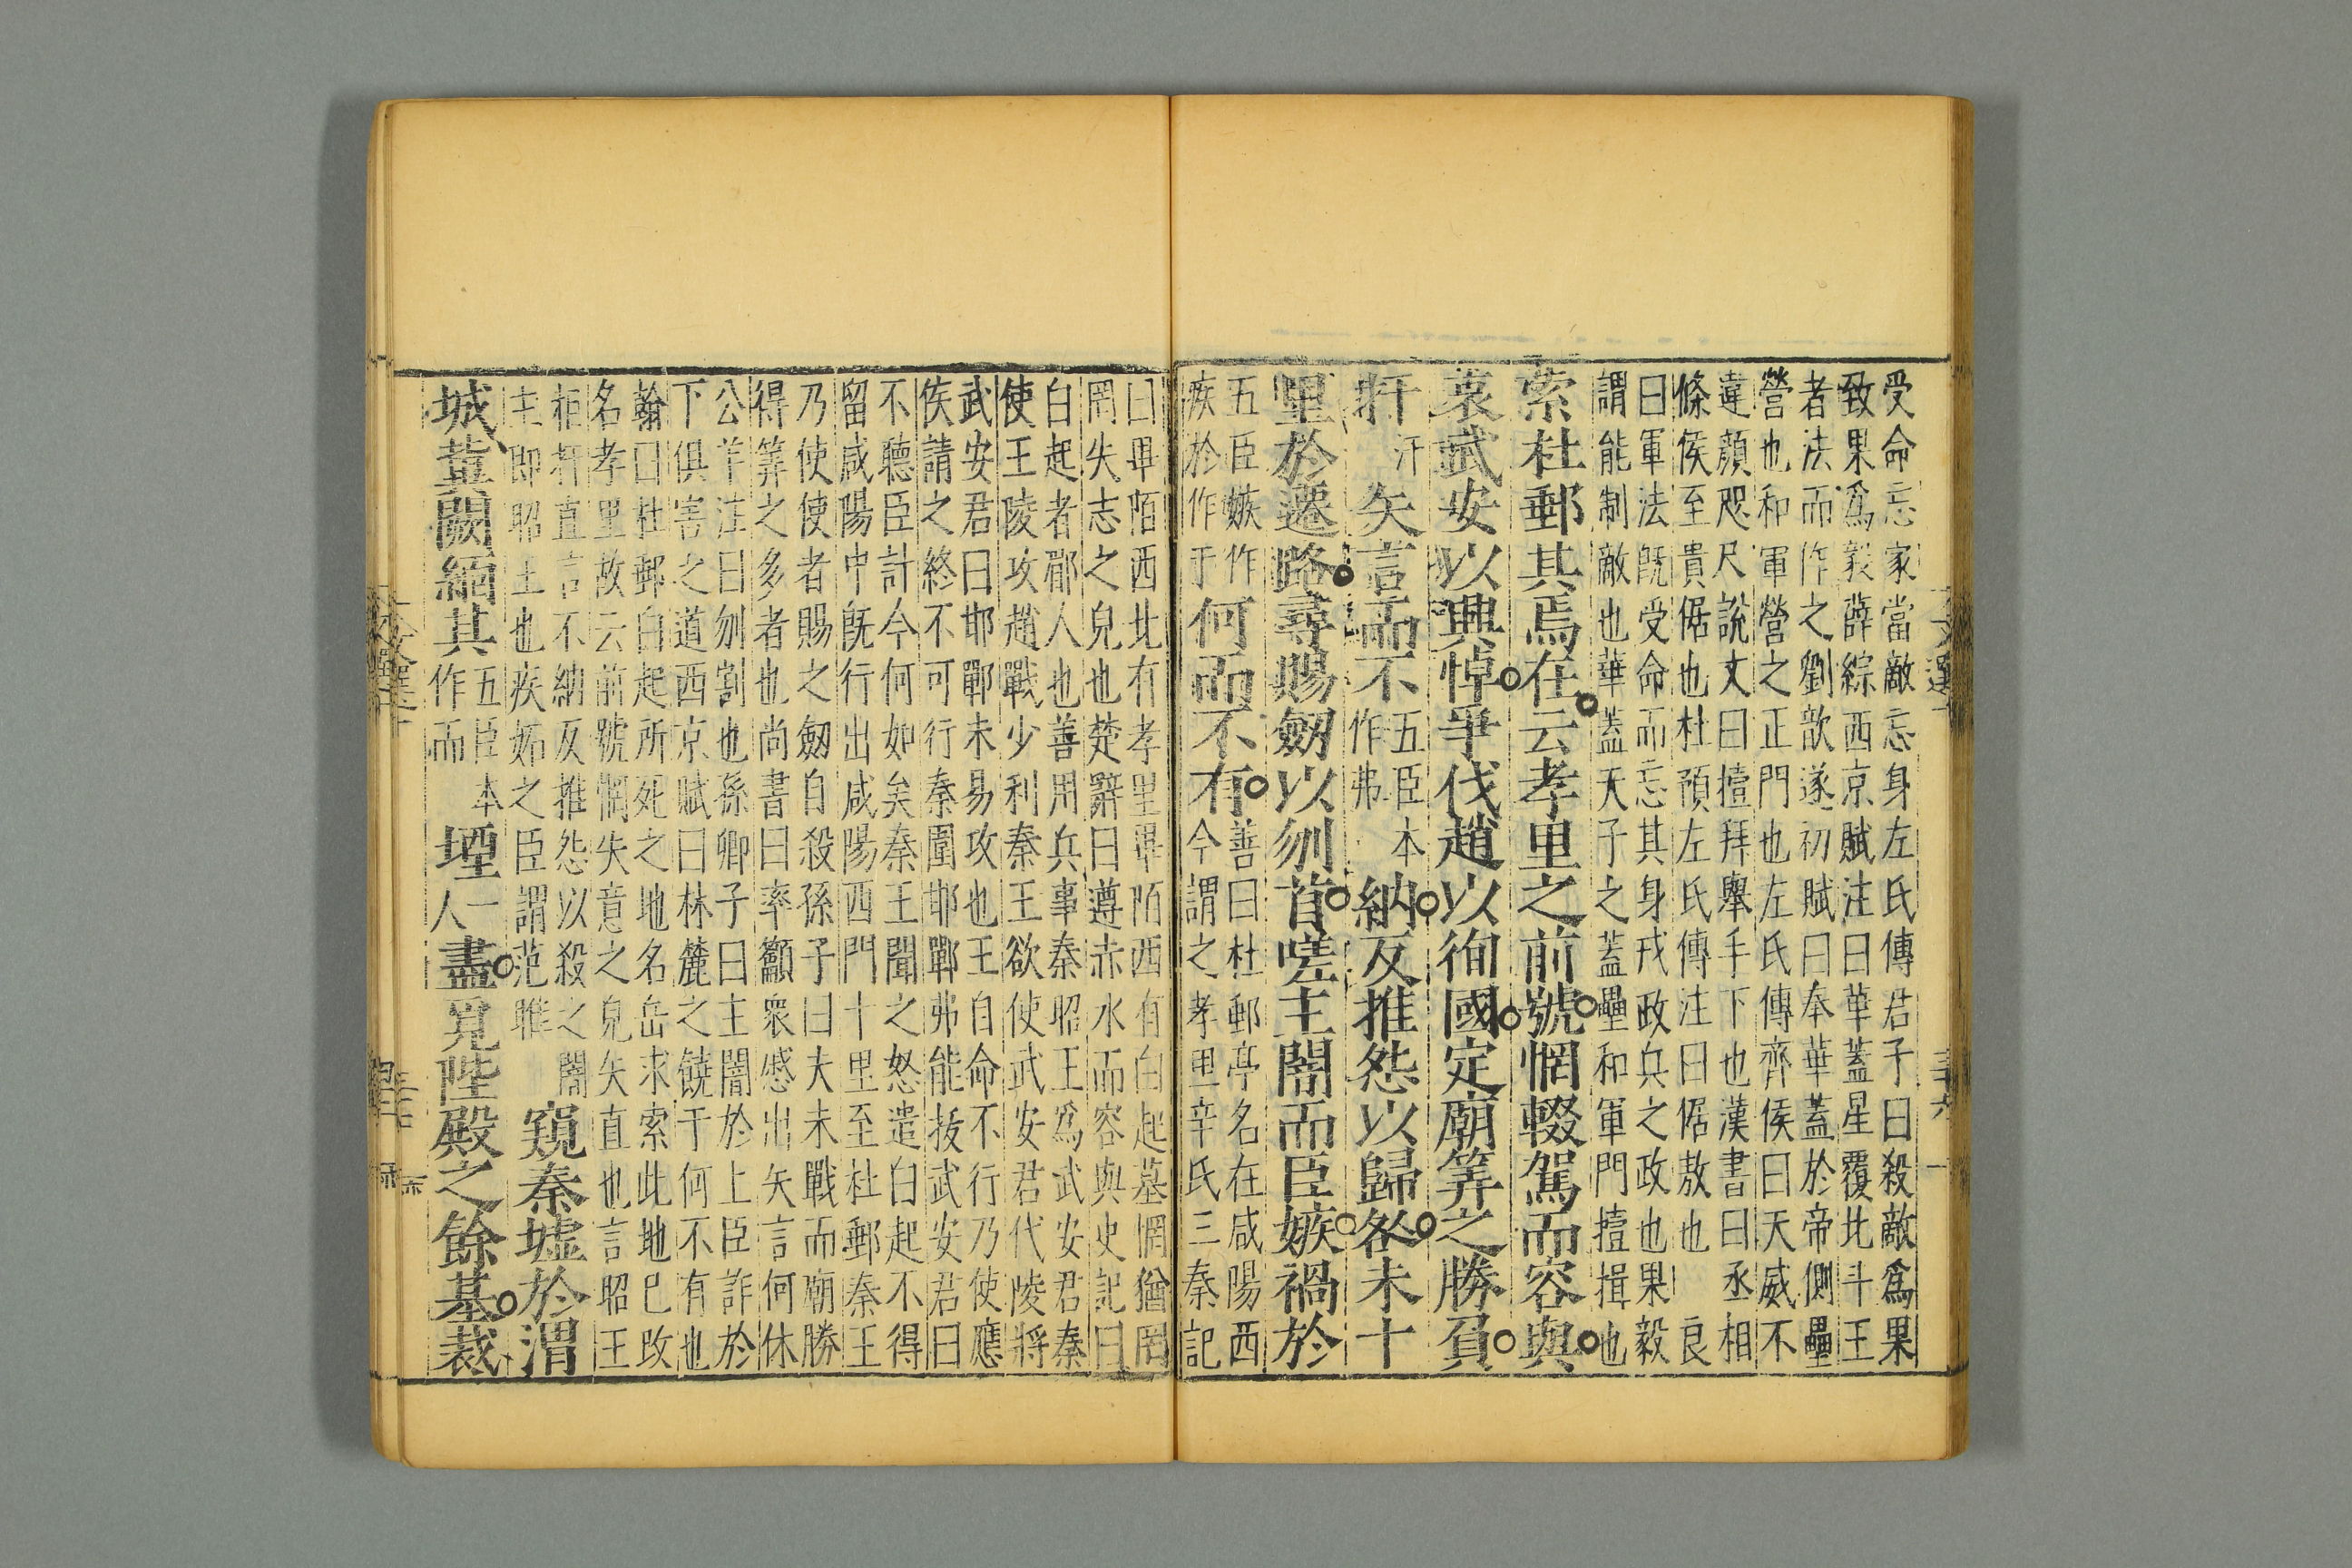 受命忘家當敵忘身左氏傳君子曰殺敵爲果
致果爲毅薛綜西京賦注曰華蓋星覆北斗王
者法而作之劉歆遂初賦曰奉華蓋於帝側壘
營也和軍營之正門也左氏傳齊侯曰天威不
違顔咫尺說文曰擅拜舉手下也漢書曰丞相
條侯至貴倨也杜預左氏傳注曰倨敖也 良
曰軍法旣受命而忘其身戎政兵之政也果毅
謂能制敵也華蓋天子之蓋壘和軍門擅揖也
索杜郵其焉在云孝里之前號惘輟駕而容與
哀武安以興悼爭伐趙以徇國定廟筭之勝負
扞汗矢言而不五臣本作弗納反推怨以歸咎未十
里於遷路尋賜劒以刎首嗟主闇而臣嫉禍於
五臣嫉作疾於作于何而不有善曰杜郵亭名在咸陽西今謂之孝里辛氏三秦記
曰畢陌西北有孝里畢陌西有白起墓惘猶罔
罔失志之皃也楚辭曰遵赤水而容與史記曰
白起者郿人也善用兵事秦昭王爲武安君秦
使王陵攻趙戰少利秦王欲使武安君代陵將
武安君曰邯鄲未易攻也王自命不行乃使應
侯請之終不可行秦圍邯鄲弗能拔武安君曰
不聽臣計今何如矣秦王聞之怒遣白起不得
留咸陽中旣行出咸陽西門十里至杜郵秦王
乃使使者賜之劒自殺孫子曰夫未戰而廟勝
得筭之多者也尚書曰率籲衆慼出矢言何休
公羊注曰刎割也孫卿子曰主闇於上臣詐於
下俱害之道西京賦曰林麓之饒于何不有也
翰曰杜郵白起所死之地名岳求索此地已改
名孝里故云前號惘失意之皃矢直也言昭王
拒扞直言不納反推怨以殺之闇
主即昭王也疾妬之臣謂范雎 窺秦墟於渭
城冀闕緬其五臣本作而堙一人盡覓陛殿之餘基裁